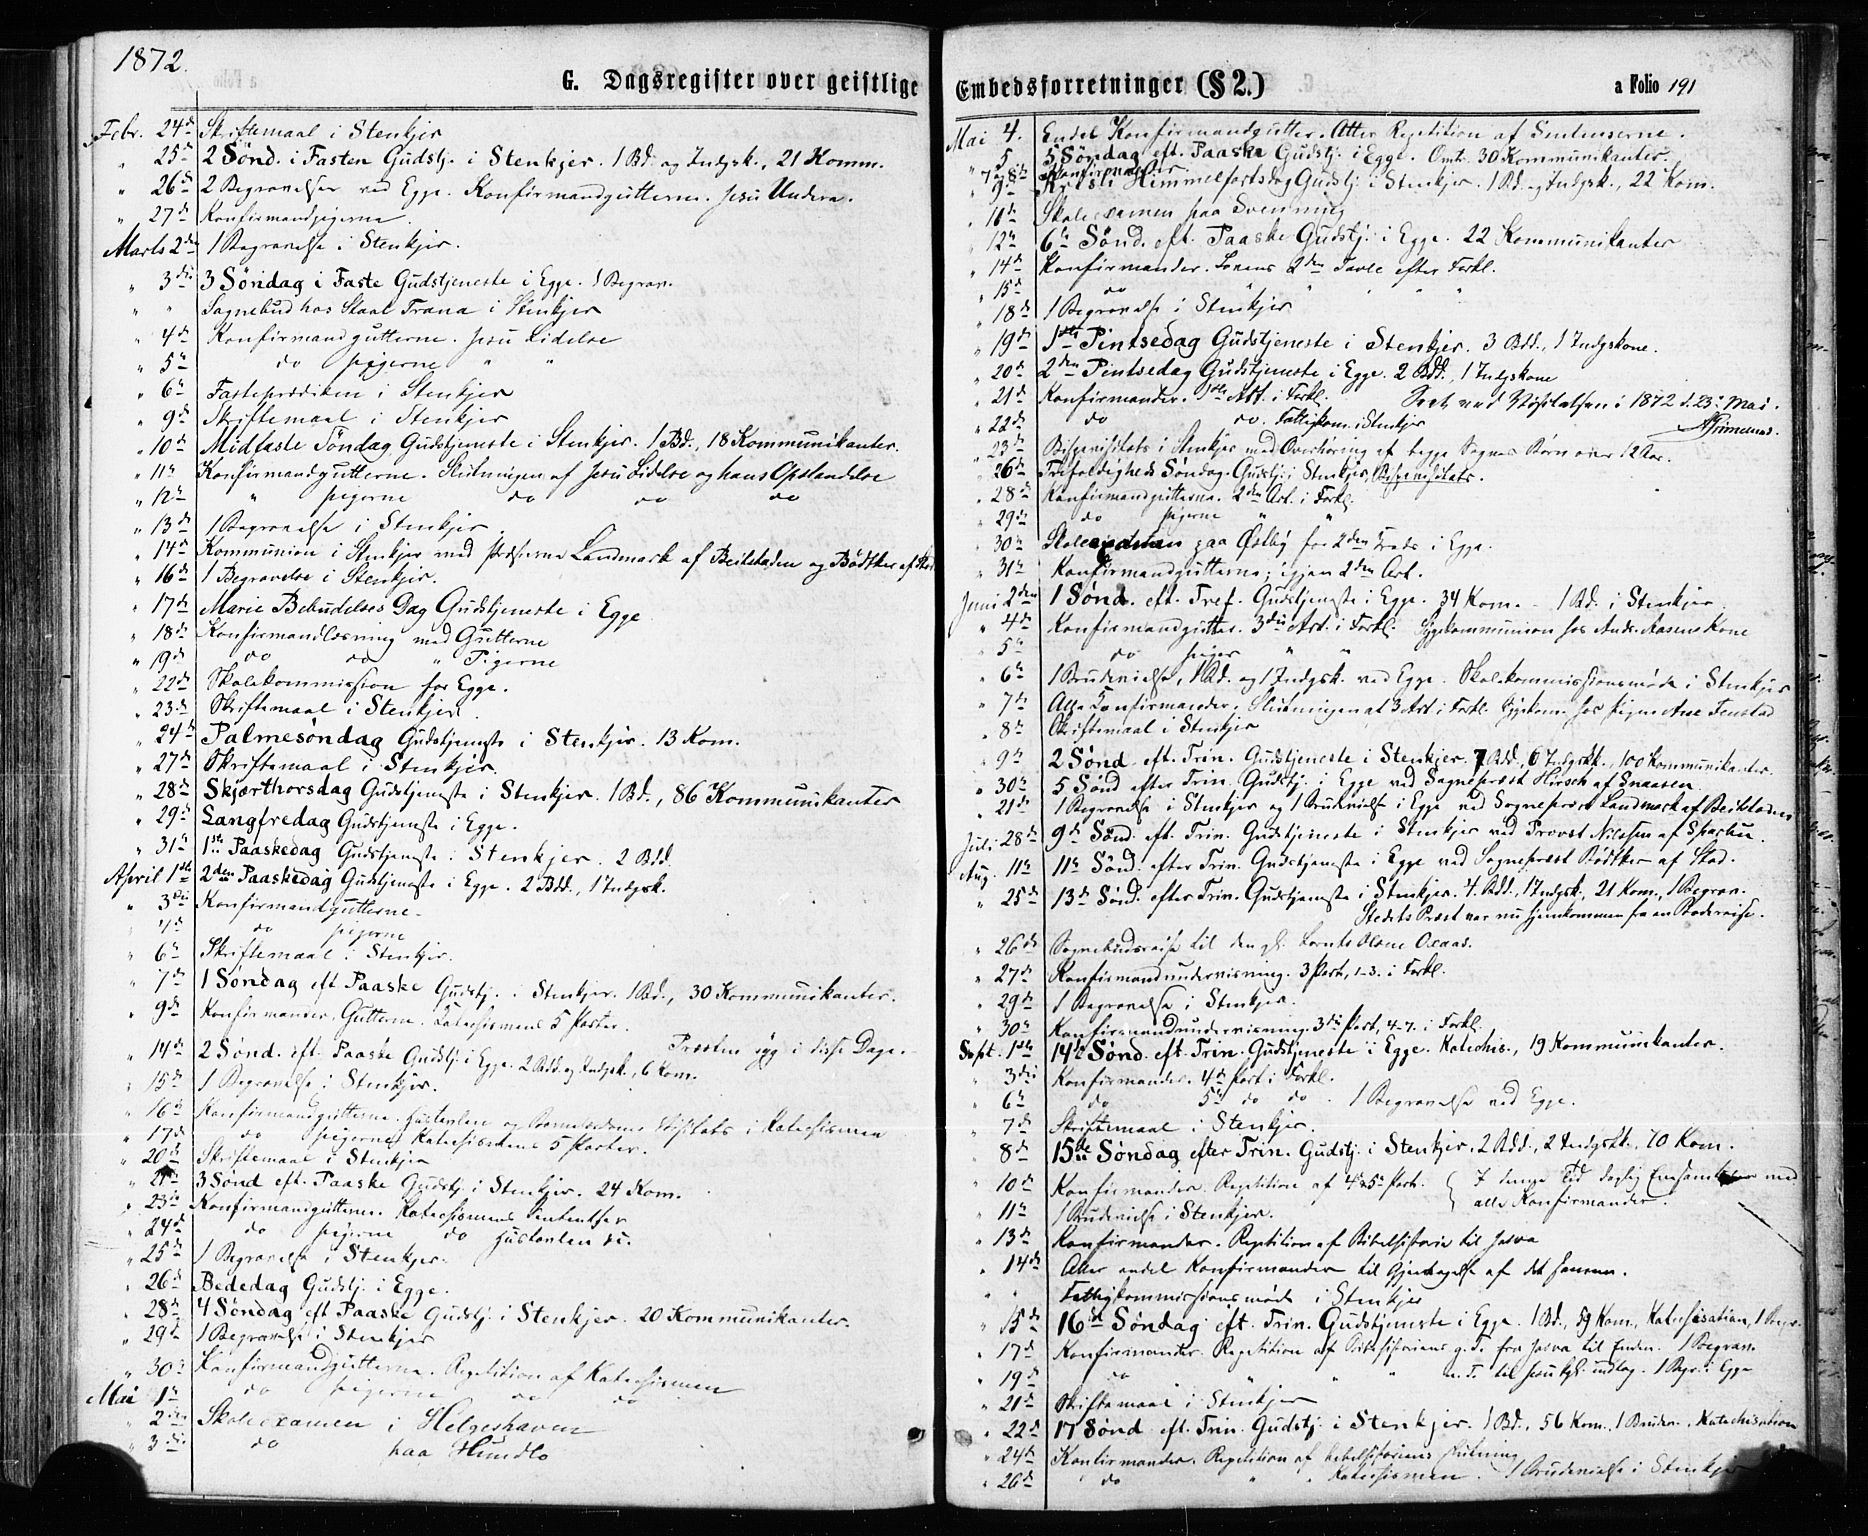 1872.
G. Dagsregister over geistlige
Febr. 24de Skriftemaal i Stenkjer
" 25de 2 Sønd. i Fasten Gudstj. i Stenkjer. 1 Bd. og Indgsk., 21 Komm.
" 26de 2 Begravelser ved Egge. Konfirmandgutterne. Jesu Undere.
" 27de Konfirmandpigerne.
Marts 2den 1 Begravelse i Stenkjer.
" 3die 3 Søndag i Faste Gudstjeneste i Egge. 1 Begrav.
" " Sognebud hos Staal Trana i Stenkjer
" 4de Konfirmandgutterne. Jesu Lidelse
" 5te do pigerne " "
" 6te Fasteprædiken i Stenkjer
" 9de Skriftemaal i Stenkjer
" 10de Midfaste Søndag Gudstjeneste i Stenkjer. 1 Bd., 18 Kommunikanter.
" 11te Konfirmandgutterne. Slutningen af Jesu Lidelse og hans Opstandelse
" 12te " pigerne do do do
" 13de 1 Begravelse i Stenkjer.
" 14de Kommunion i Stenkjer med Præsterne Landmark af Beitstaden og Bødtker af
" 16de 1 Begravelse i Stenkjer.
" 17de Marie Bebudelses Dag Gudstjeneste i Egge
" 18de Konfirmandlæsning med Gutterne
" 19de do do " Pigerne
" 22de Skolekommission for Egge.
" 23de Skriftemaal i Stenkjer.
" 24de Palmesøndag Gudstjeneste i Stenkjer. 13 Kom.
" 27de Skriftemaal i Stenkjer.
" 28de Skjærthorsdag Gudstjeneste i Stenkjer. 1 Bd., 86 Kommunikanter
" 29de Langfredag Gudstjeneste i Egge.
" 31te 1ste Paaskedag Gudstjeneste i Stenkjer. 2 Bdd.
April 1ste 2den Paaskedag Gudstjeneste i Egge. 2 Bdd., 1 Indgsk.
" 3die Konfirmandgutterne.
" 4de do pigerne
" 6te Skriftemaal i Stenkjer.
" 7de 1 Søndag eft. Paaske Gudstj. i Stenkjer. 1 Bd., 30 Kommunikanter.
" 9de Konfirmander, Gutterne. Katechismens 5 Parter.
Præsten syg i disse Dage.
" 14de 2 Sønd. eft. Paaske Gudstj. i Egge. 2 Bdd. og Indgsk., 6 Kom.
" 15de 1 Begravelse i Stenkjer.
" 16de Konfirmandgutterne. Hustavlen og i Katechismen
" 17de do pigerne Katechismens 5 Parter.
" 20de Skriftemaal i Stenkjer
" 21de 3 Sønd eft. Paaske Gudstj. i Stenkjer. 24 Kom.
" 23de Konfirmandgutterne. Katechismens Sententser
" 24de do pigerne do Hustavlen &c.
" 25de 1 Begravelse i Stenkjer.
" 26de Bededag Gudstj. i Egge.
" 28de 4 Søndag eft Paaske Gudstj. i Stenkjer. 20 Kommunikanter.
" 29de 1 Begravelse i Stenkjer
" 30te Konfirmandgutterne. Repetition af Katechismen
Mai 1ste do pigerne do do
" 2den Skoleexamen i Helgeshaven
" 3die do paa Hundlo
Embedsforretninger (§ 2.)
a Folio 191
Mai 4. Endel Konfirmandgutter. Atter Repetition af Sentenserne.
" 5 5 Søndag eft. Paaske Gudstj. i Egge. Omtr. 30 Kommunikanter.
" 7 og 8de Konfirmander
" 9de Kristi Himmelfartsdag Gudstj. i Stenkjer. 1 Bd. og Indgsk., 22 Kom.
" 10de Skoleexamen paa Svenning
" 12te 6te Sønd. eft. Paaske Gudstj. i Egge. 22 Kommunikanter
" 14de Konfirmander. Lovens 2den Tavle efter Forkl.
" 15de do " " " " "
" 18de 1 Begravelse i Stenkjer
" 19de 1ste Pintsedag Gudstjeneste i Stenkjer. 3 Bdd., 1 Indgskone.
" 20de 2den Pintsedag Gudstjeneste i Egge. 2 Bdd., 1 Indgskone
" 21de Konfirmander. 1ste Art. i Forkl. Seet ved Visitatsen i 1872 d. 23. Mai.
" 22de do do. Fattigkom. i Stenkjer
" 23de Bispevisitats i Stenkjer med Overhøring af begge Sognes Børn over 12 Aar.
" 26de Trefoldigheds Søndag. Gudstj. i Stenkjer, Bispevisitats.
" 28de Konfirmandgutterne. 2den Art. i Forkl.
" 29de do pigerne " "
" 30te Skoleexamen paa Østby for 2den Kreds i Egge.
" 31te Konfirmandgutterne; igjen 2den Art.
Juni 2den 1 Sønd. eft. Tref. Gudstjeneste i Egge. 34 Kom. 1 Bd. i Stenkjer.
" 4de Konfirmandgutter. 3die Art. i Forkl. Sygekommunion hos Ands. Aasens Kone
" 5te do piger " "
" 6te 1 Brudevielse, 1 Bd. og 1 Indgsk. ved Egge. Skolekommissionsmøde i Stenkjer
" 7de Alle Konfirmander; Slutningen af 3 Art. i Forkl. Sygekom. hos Pigen Ane Fenstad
" 8de Skriftemaal i Stenkjer
" 9de 2 Sønd eft. Trin. Gudstjeneste i Stenkjer. 7 Bdd., 6 Indgskk., 100 Kommunikanter.
" 30te 5 Sønd efter Trin. Gudstj. i Egge ved Sognepræst Hirsch af Snaasen.
" 21de 1 Begravelse i Stenkjer og 1 Brudevielse i Egge ved Sognepræst Landmark af Beitstaden
Juli 28de 9de Sønd. eft. Trin. Gudstjeneste i Stenkjer ved Provst Nilssen af Sparbu
Aug. 11te 11te Sønd. efter Trin. Gudstjeneste i Egge ved Sognepræst Bødtker af Stod.
" 25de 13de Sønd. efter Trin. Gudstjeneste i Stenkjer. 4 Bdd., 1 Indgsk., 21 Kom., 1 Begrav.
Stedets Præst var nu hjemkommen fra en Badereise.
" 26de Sognebudsreise til den gl.
" 27de Konfirmandundervisning. 3 Part, 1-3. i Forkl.
" 29de 1 Begravelse i Stenkjer.
" 30te Konfirmandundervisning. 3die Part, 4-7. i Forkl.
Sept. 1ste 14de Sønd. eft. Trin. Gudstjeneste i Egge. Katechis., 19 Kommunikanter.
" 3die Konfirmander. 4de Part i Forkl.
" 6te do 5te do do. 1 Begravelse ved Egge.
" 7de Skriftemaal i Stenkjer.
" 8de 15de Søndag efter Trin. Gudstj. i Stenkjer. 2 Bdd., 2 Indgskk., 70 Kom.
" 10de Konfirmander. Repetition af 4 & 5te Part. { I denne Tid daglig Ensamtaler med
" 11te 1 Brudevielse i Stenkjer. alle Konfirmander
" 13de Konfirmander. Repetition af Bibelhistorie til Josva
" 14de Atter endel Konfirmander til Gjentagelse af det samme.
" " Fattigkommissionsmøde i Stenkjer
" 15de 16de Søndag eft. Trin. Gudstjeneste i Egge. 1 Bd., 59 Kom., Katechisation, 1 Begr.
" 17de Konfirmander. Repetition af Bibelhistoriens g. T. fra Josva til Enden. 1 Begrav.
" 19de do " " " n. T. til Jesu indtog. 1 Begr. i Egge
" 21de Skriftemaal i Stenkjer
" 22de 17 Sønd eft. Trin. Gudstj. i Stenkjer. 1 Bd., 56 Kom., 1 Brudev., Katechisation
" 24de Konfirmander. Repetition af bibelhistoriens slutning
" 26de do " " Katechismen. 1 Brudevielse i Stenkjer